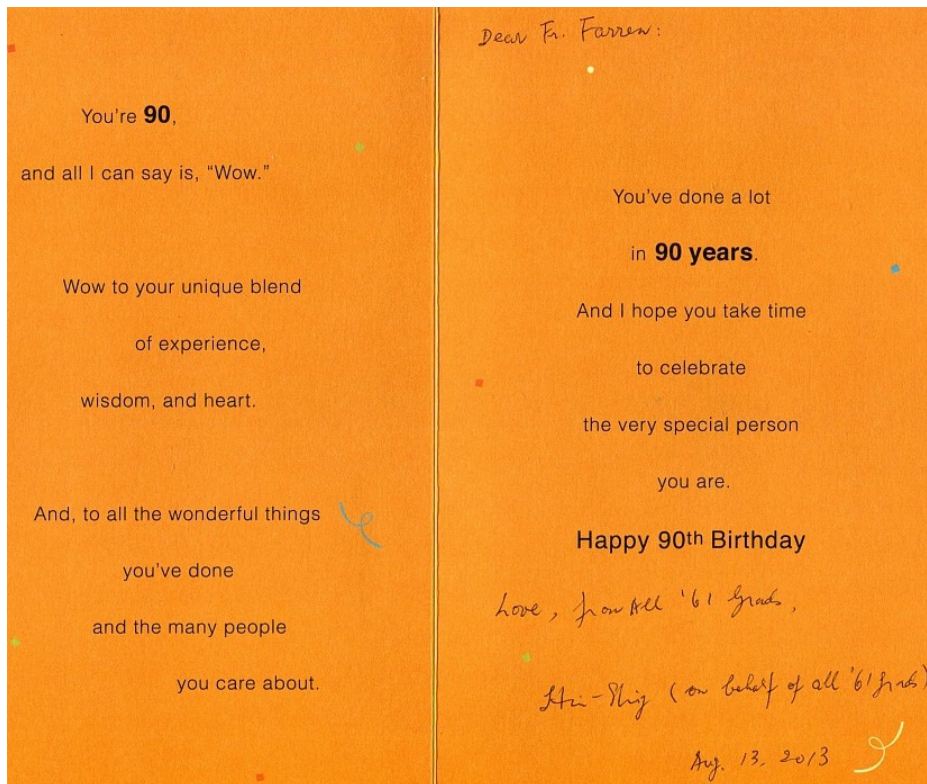 You're 90,
and all I can say is, “Wow.”
Wow to your unique blend
of experience,
wisdom, and heart.
And, to all the wonderful things
you've done
and the many people
you care about.
Dear Fr. Farren:
You've done a lot
in 90 years.
And I hope you take time
to celebrate
the very special person
you are.
Happy 90th Birthday
Love, from All '61 Grads,
(on behalf of all '61 grads)
Aug. 13, 2013